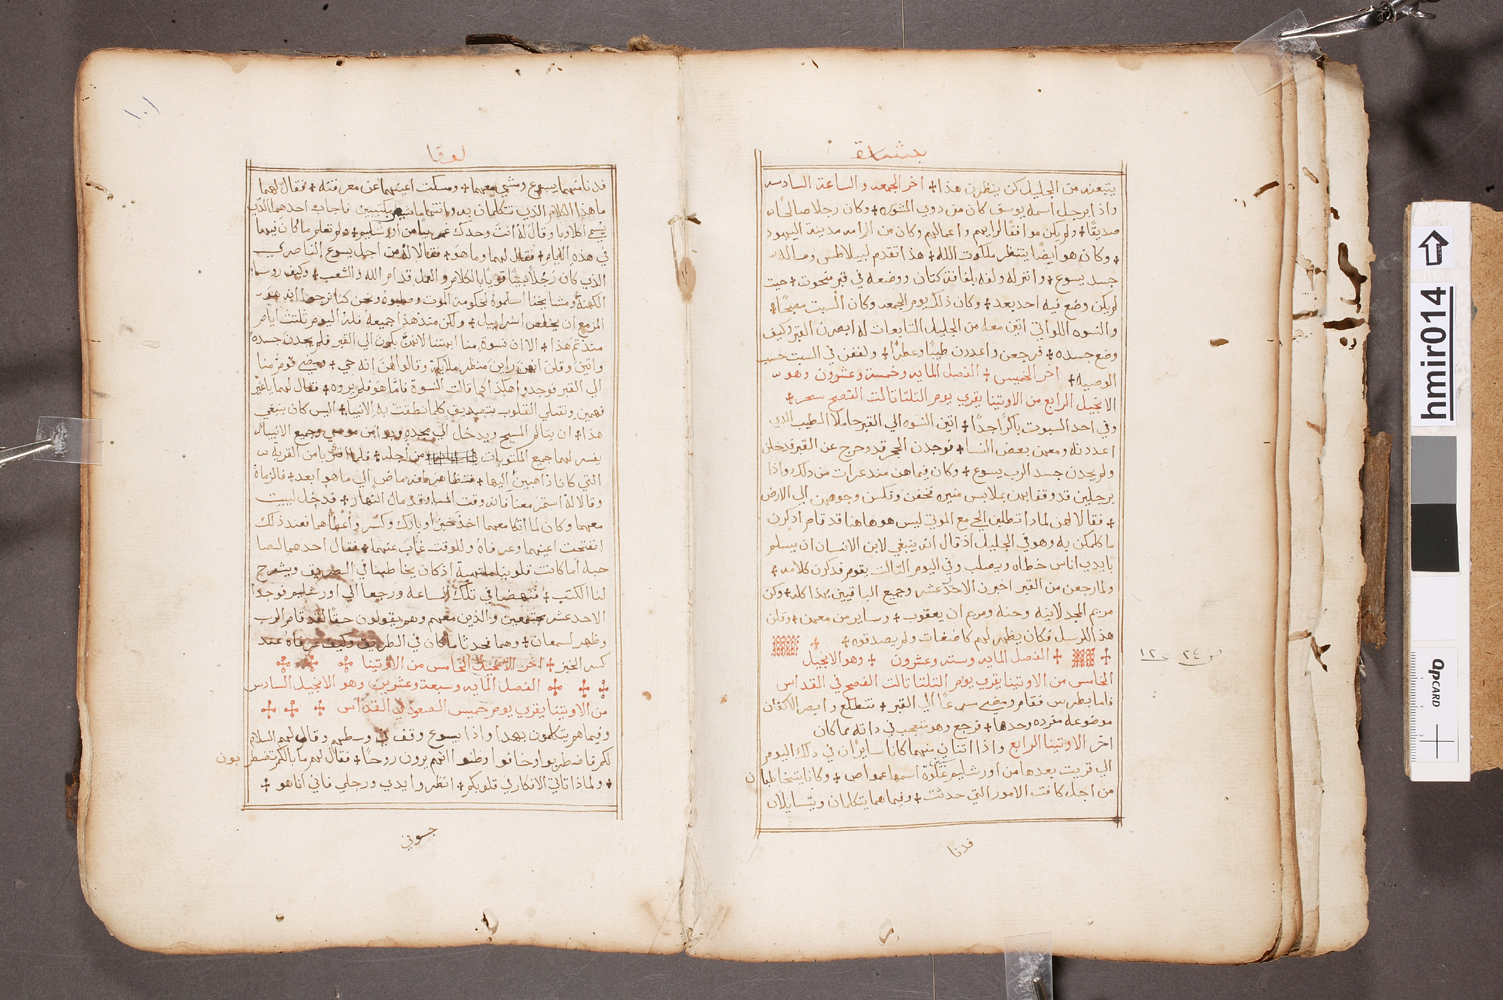 بشارة
يتبعنه من الجليل كن ينظرن هذا + اخر الجمعه والساعة السادسه
واذا برجل اسمه يوسف كان من دوي المشوره + وكان رجلا صالحًا
صديقًا + ولم يكن موافقًا لرايهم واعمالهم وكان من الرامه مدينة اليهود
+ وكان هو ايضًا ينتظر ملكوت الله + هذا تقدم لبيلاطس وساله
جسد يسوع + وانزله ولفه بلفافة كتان ووضعه في قبر منحوت + حيت
لم يكن وضع فيه احد بعد + وكان ذلك يوم الجمعه وكان السبت مصبحًا +
والنسوه اللواتي اتين معه من الجليل التابعات له ابصرن القبر وكيف
وضع جسده + فرجعن واعددن طيبًا وعطرًا + ولففن في السبت حسب
الوصيه + اخر الخميس + الفصل المايه وخمسة وعشرون وهو
الانجيل الرابع من الاوتينا يقرى يوم التلتا تالت الفصح سحر +
وفي احد السبوت باكرًا جدًا + اتين النسوه الي القبر حاملات الطيب الدي
اعددنه ومعهن بعض النسا + فوجدن الحجر قد دحرج عن القبر فدخلن
ولم يجدن جسد الرب يسوع + وكان فيما هن متدعرات من دلك واذا
برجلين قد وقفا بهن بملابس منيره فخفن ونكسن وجوههن الي الارض
+ فقالا لهن لمادا تطلبن الحي مع الموتي ليس هو هاهنا قد قام ادكرن
ما كلمكن به وهو في الجليل اذ قال انه ينبغي لابن الانسان ان يسلم
بايدي اناس خطاه ويصلب وفي اليوم التالت يقوم فدكرن كلامه +
ولما رجعن من القبر اخبرن الاحد عشر وجميع الباقيين بهدا كله + وكن
مريم المجدلانيه وحنه ومريم ام يعقوب + وساير من معهن + وقلن
هذا للرسل فكان يظهر لهم كاضغات ولم يصدقوه +
+ الفصل المايه وسته وعشرون + وهو الانجيل
الخامس من الاوتينا يقرى يوم التلتا تالت الفصح في القداس
فاما بطرس فقام ومضي سرعًا الي القبر + فتطلع وابصر الاكفان
موضوعه مفرده وحدها + فرجع وهو متعجب في داته مما كان
اخر الاوتينا الرابع واذا اتناني منهما كانا سايران في دلك اليوم
الي قريت بعدها من اورشليم غلوة اسمها عمواص + وكانا يتخاطبان
من اجل كافت الامور التي حدثت + وفيما هما يتكلمان ويتسايلان
قدنا
لو ٢٤ ع ١٢
لوقا
١٠١
قدنا منهما يسوع ومشي معهما + ومسكت اعينهما عن معرفته + فقال لهما
ما هذا الكلام الذي تتكلمان به وانتما ماشيين مكتيبين فاجاب احدهما الذي
يسمي اكلاوبا وقال له انت وحدك غريبًا من اورشليم + ولم تعلم ما كان فيها
في هذه الايام + فقال لهما وما هو + فقالا له من اجل يسوع الناصري
الذي كان رجلًا نبيًا قويًا بالكلام والعمل قدام الله والشعب + وكيف روسا
الكهنة ومشايخنا اسلموه لحكومة الموت وصلبوه ونحن كنا نرجوا انه هو
المزمع ان يخلص اسراييل + ولكن مند هذا جميعه فلنا اليوم تلتت ايام
منذ تم هذا + الا ان نسوة منا ابهتنا لانهن بكرن الي القبر فلم يجدن جسده
واتين وقلن انهن راين منظر ملايكة وقالوا لهن انه حي + ومضي قوم منا
الي القبر فوجدوا هكذا كما قالت النسوة فاما هو فلم يروه + فقال لهما يا غير
فهمين وتقيلي القلوب بتصديق كلما نطقت به الانبيا + اليس كان ينبغي
هذا + ان يتالم المسيح ويدخل الي مجده وبدا من موسي وجميع الانبيا
يفسر لهما جميع المكتوبات من اجله + فلما اقتربا من القريه
التي كانا ذاهبين اليها + فتظاهر كانه ماض الي ما هو ابعد + فالزماه
وقالا له استمر معنا فانه وقت المسا وقد مال النهار + فدخل ليبيت
معهما وكان لما اتكا معهما اخذ خبزًا وبارك وكسر واعطاهما فعند ذلك
انفتحت اعينهما وعرفاه وللوقت غاب عنهما + فقال احدهما لصا
حبه اما كانت قلوبنا ملتهبة اذ كان يخاطبنا في الطريق ويشرح
لنا الكتب + فنهضا في تلك الساعة ورجعا الي اورشليم فوجدا
الاحد عشر مجتمعين والذين معهم وهم يقولون حقًا لقد قام الرب
وظهر لسمعان + وهما تحدثا ما كان في الطريق وكيف عرفاه عند
كسر الخبز + اخر الانجيل الخامس من الاوتينا
الفصل المايه وسبعة وعشرين وهو الانجيل السادس
من الاوتينا يقرى يوم خميس الصعود في القداس
وفيما هم يتكلمون بهدا واذا يسوع وقف في وسطهم وقال لهم السلام
لكم فاضطربوا وخافوا وظنوا انهم يرون روحًا + فقال لهم ما بالكم تضطربون
+ ولماذا تاتي الافكار في قلوبكم + انظروا يدي ورجلي فاني انا هو +
جسوني
hmir014
QPcard